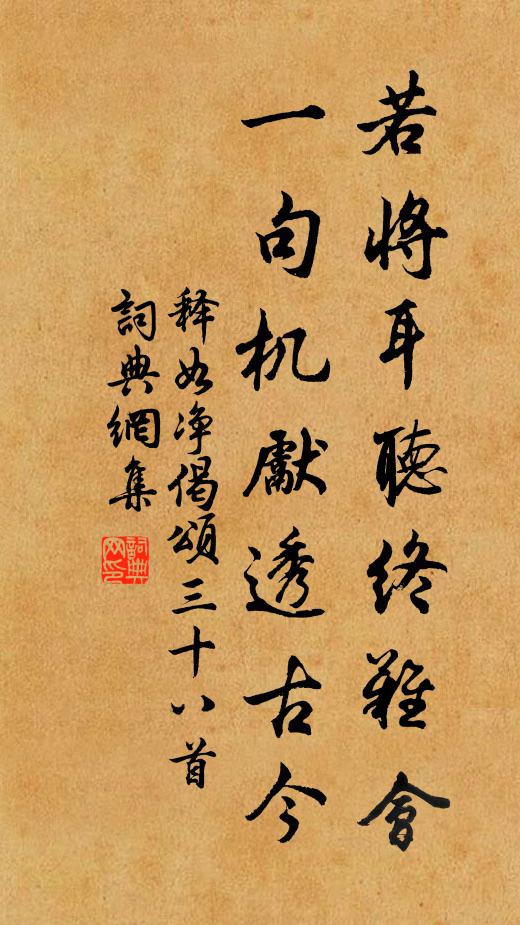 若将耳聽終難會
一句机獻透古今
释如净偈頌三十八首
詞典網集
詞典網印